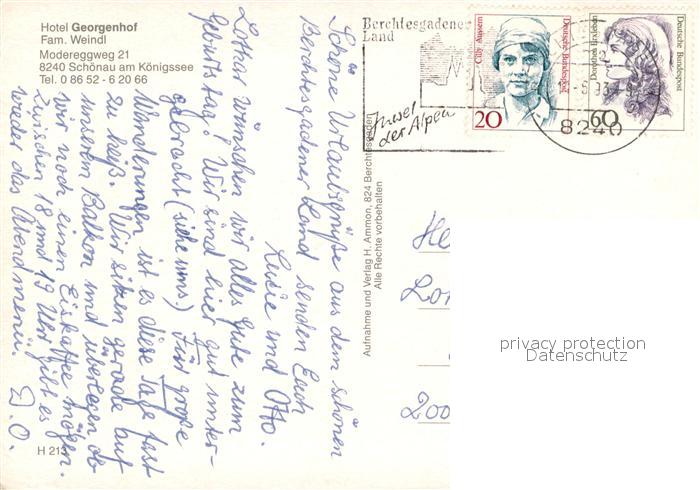 Hotel Georgenhof
Fam. Weindl
Modereggweg 21
8240 Schönau am Königssee
Tel. 0 86 52 - 6 20 66
Schöne Urlaubsgrüße aus dem schönen
Berchtesgadener Land senden Euch
Luzie und Otto.
Lothar wünschen wir alles Gute zum
Geburtstag! Wir sind hier gut unter-
gebracht (siehe ums.) Für große
Wanderungen ist es diese Tage fast
zu heiß. Wir sitzen gerade auf
unserem Balkon und überlegen ob
wir noch einen Eiskaffee mögen.
Zwischen 18 und 19 Uhr gibt es
wieder das Abendmenü. D. O.
H 213
Aufnahme und Verlag H. Ammon, 824 Berchtesgaden
Alle Rechte vorbehalten
Berchtesgadener
Land
Insel
der Alpen
Cilly Aussem
Deutsche Bundespost
20
Dorothea Erxleben
Deutsche Bundespost
60
8240
He
Lo
200
privacy protection
Datenschutz